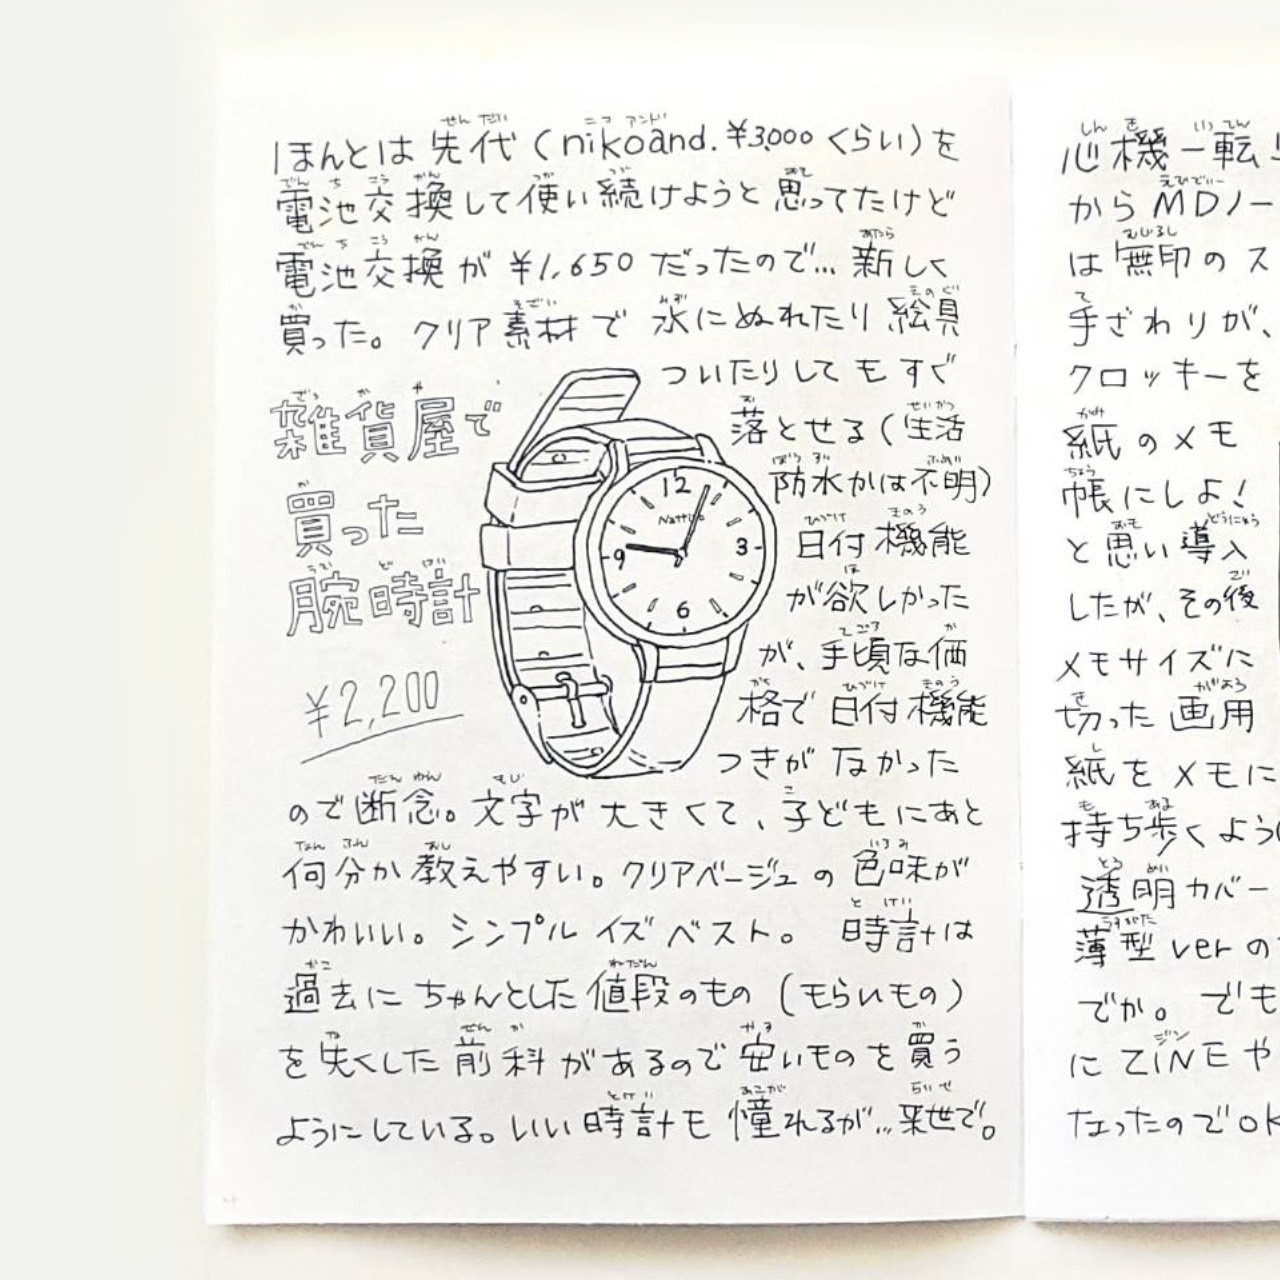 ほんとは先代(nikoand.¥3,000くらい)を
電池交換して使い続けようと思ってたけど
電池交換が¥1,650だったので…新しく
買った。クリア素材で水にぬれたり絵具
ついたりしてもすぐ
落とせる(生活
防水かは不明)
日付機能
が欲しかった
が、手頃な価
格で日付機能
つきがなかった
ので断念。文字が大きくて、子どもにあと
何分か教えやすい。クリアベージュの色味が
かわいい。シンプルイズベスト。時計は
過去にちゃんとした値段のもの(もらいもの)
を失くした前科があるので安いものを買う
ようにしている。いい時計も憧れるが…来世で。
雑貨屋で
買った
腕時計
¥2,200
12
3
6
9
心機一転
からMDノー
は無印のス
手ざわりが、
クロッキーを
紙のメモ
帳にしよ!
と思い導入
したが、その後
メモサイズに
切った画用
紙をメモに
持ち歩くよう
透明カバー
薄型verの
でか。でも
にZINEや
なったのでOK